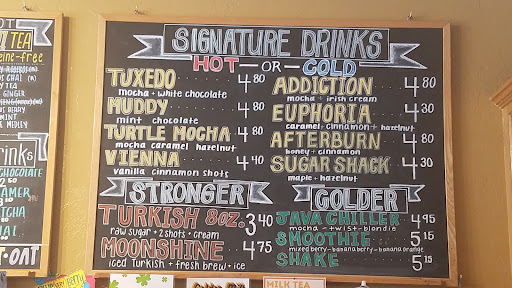 SIGNATURE DRINKS
HOT - OR - COLD
TUXEDO 4 80
mocha + white chocolate
MUDDY 4 80
mint chocolate
TURTLE MOCHA 4 80
mocha caramel hazelnut
VIENNA 4 40
vanilla cinnamon shots
ADDICTION 4 80
mocha + irish cream
EUPHORIA 4 30
caramel + cinnamon + hazelnut
AFTERBURN 4 80
honey + cinnamon
SUGAR SHACK 4 30
maple + hazelnut
STRONGER
TURKISH 8oz. 3 40
raw sugar + 2 shots + cream
MOONSHINE 4 75
iced Turkish + fresh brew + ice
COLDER
JAVA CHILLER 4 95
mocha - twist - blondie
SMOOTHIE 5 15
mixed berry - banana berry - banana orange
SHAKE 5 15
TEA
eine-free
GINGER
MINT
MEDLEY
rinks
CHOCOLATE
T-OAT
MILK TEA